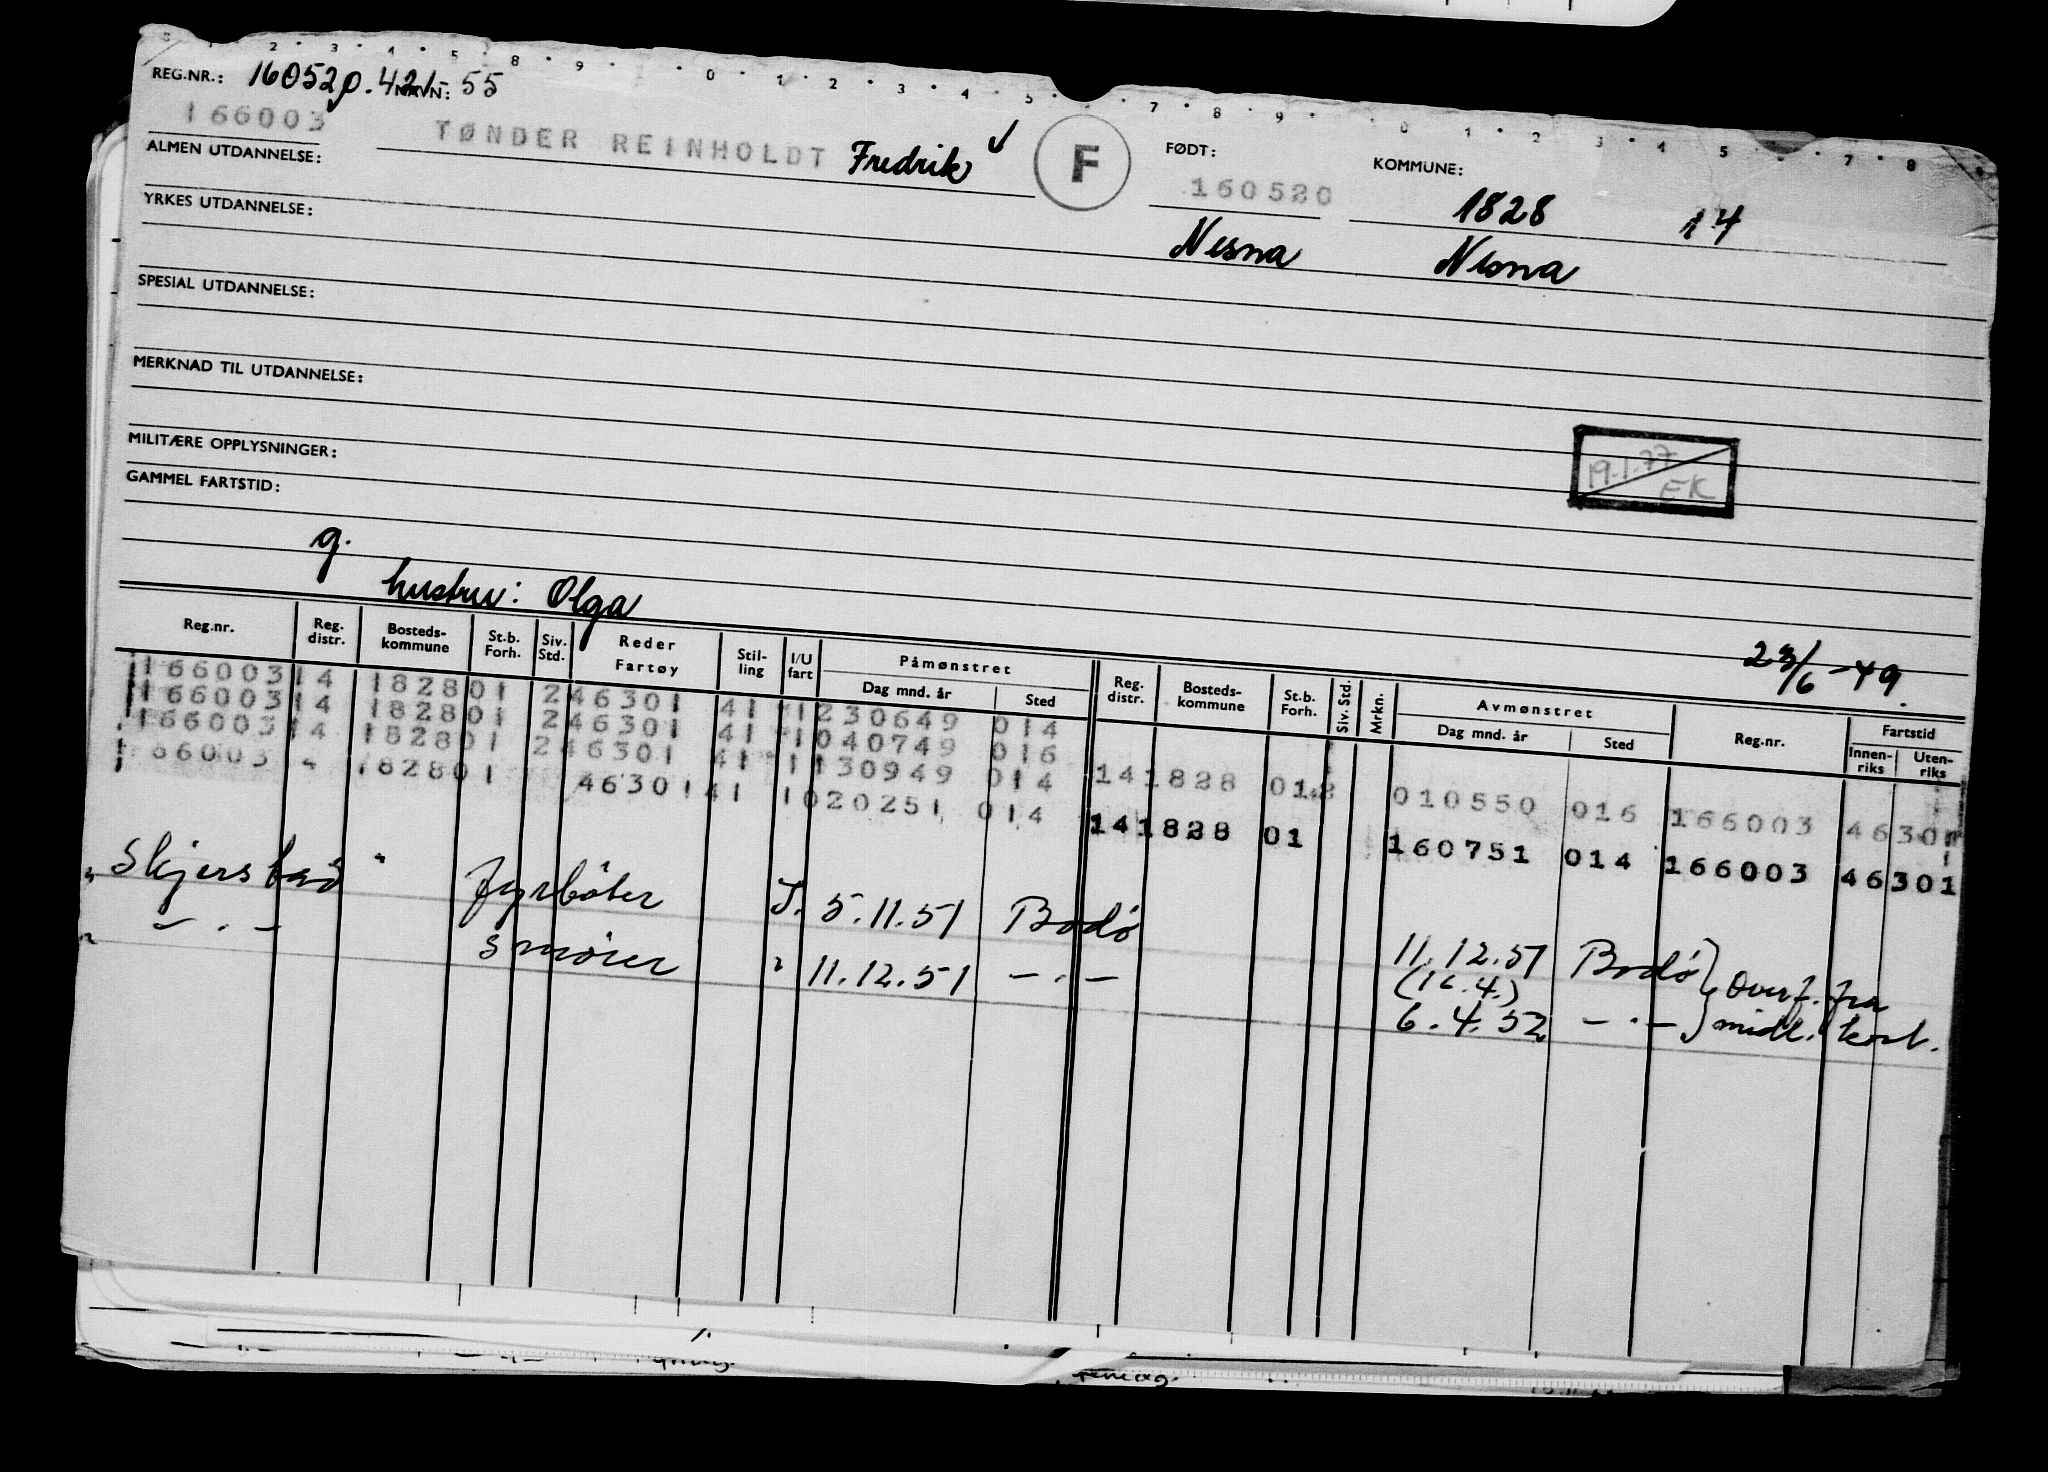 REG.NR.: 16052 p. 421-55 NAVN:
166003 TØNDER REINHOLDT Fredrik ✓ F FØDT: 160520 KOMMUNE: 1828 14
ALMEN UTDANNELSE:
Nesna Nesna
YRKES UTDANNELSE:
SPESIAL UTDANNELSE:
MERKNAD TIL UTDANNELSE:
19.1.77 EK
MILITÆRE OPPLYSNINGER:
GAMMEL FARTSTID:
g.
hustru: Olga
23/6-49.
Reg.nr. Reg. distr. Bosteds-kommune St.b. Forh. Siv. Std. Reder Fartøy Stil-ling I/U fart Påmønstret Dag mnd. år Sted Reg. distr. Bosteds-kommune St.b. Forh. Siv. Std. Mrkn. Avmønstret Dag mnd. år Sted Reg.nr. Fartstid Innen-riks Uten-riks
166003 14 1828 01 2 46301 41 1 230649 014
166003 14 1828 01 2 46301 41 1 040749 016
166003 14 1828 01 2 46301 41 1 130949 014 14 1828 01 2 010550 016 166003 46301
166003 4 1828 01 46301 41 1 020251 014 14 1828 01 160751 014 166003 46301
" Skjerstad " fyrbøter I. 5.11.51 Bodø 11.12.51 Bodø } Overf. fra
(16.4.)
" — . — smører " 11.12.51 — . — 6.4.52 — . — } midl. kort.